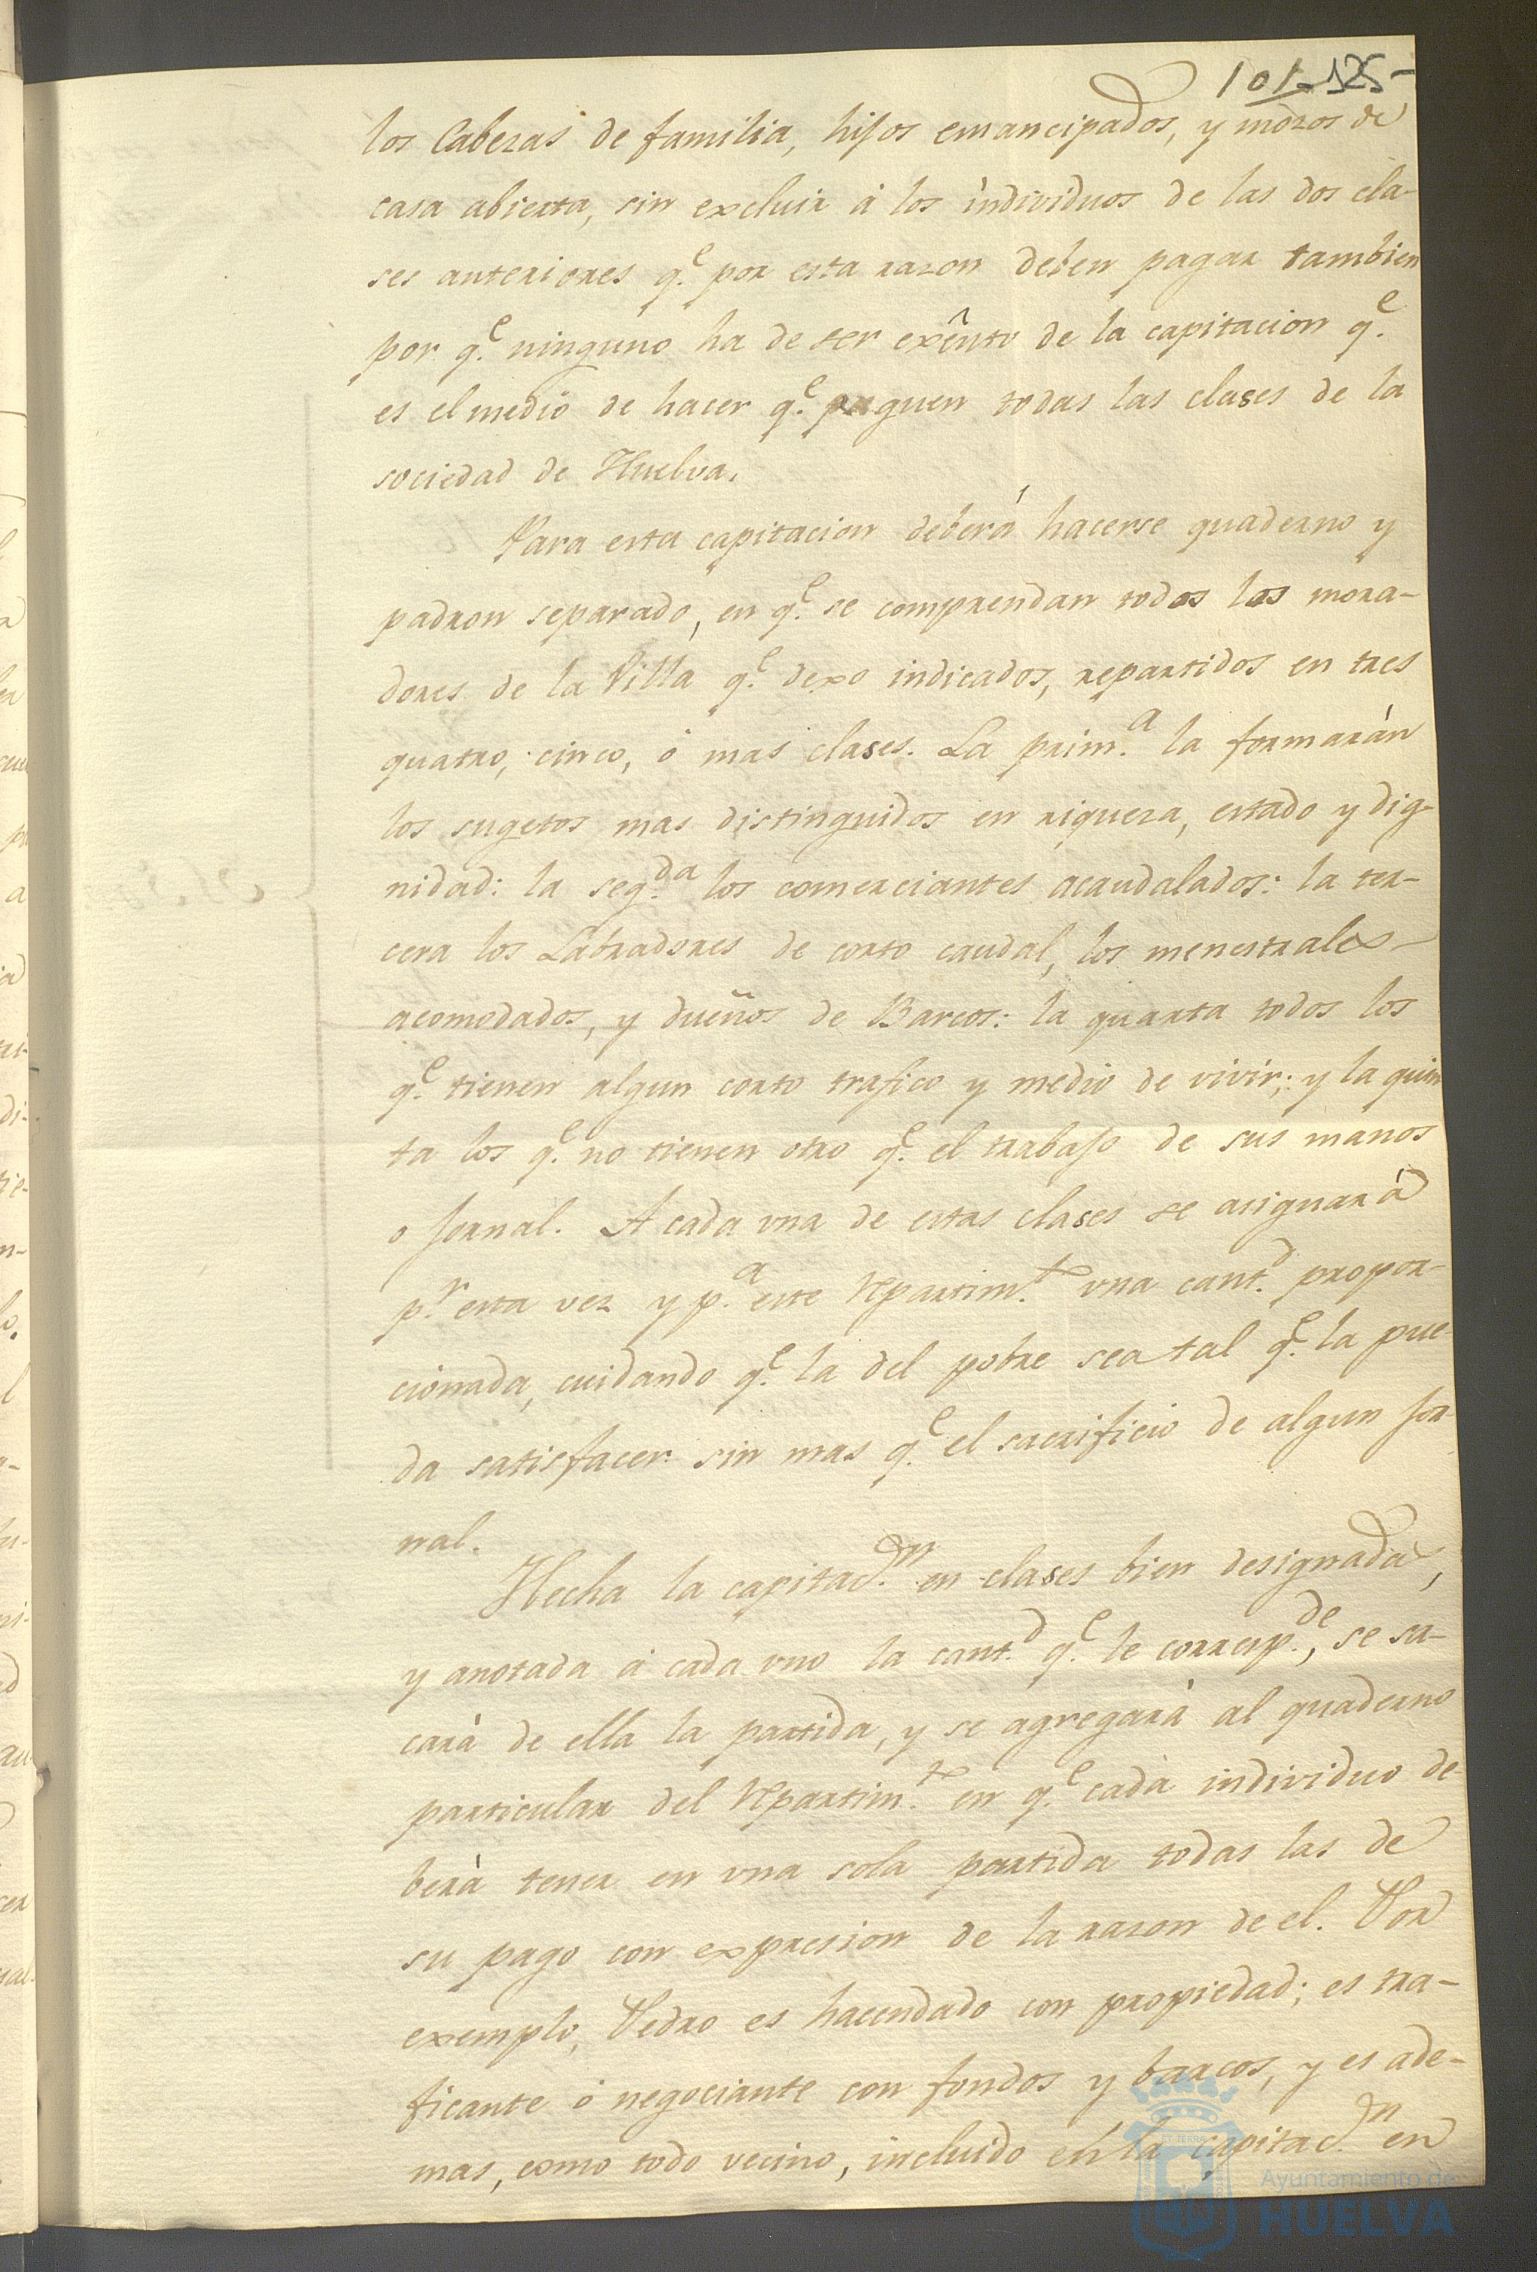 101 - 125 -
los Cabezas de familia, hijos emancipados, y mozos de
casa abierta, sin excluir á los individuos de las dos cla-
ses anteriores q.e por esta razon deben pagar tambien
por q.e ninguno ha de ser exênto de la capitacion q.e
es el medio de hacer q.e paguen todas las clases de la
sociedad de Huelva.
Para esta capitacion deberá hacerse quaderno y
padron separado, en q.e se comprendan todos los mora-
dores de la Villa q.e dexo indicados, repartidos en tres
quatro, cinco, ó mas clases. La prim.a la formarán
los sugetos mas distinguidos en riqueza, estado y dig-
nidad: la seg.da los comerciantes acaudalados: la ter-
cera los Labradores de corto caudal, los menestrales
acomodados, y dueños de Barcos: la quarta todos los
q.e tienen algun corto trafico y medio de vivir; y la quin
ta los q.e no tienen otro q.e el trabajo de sus manos
o jornal. A cada una de estas clases se asignará
p.r esta vez y p.a este Repartim.to una cant.d propor-
cionada, cuidando q.e la del pobre sea tal q.e la pue-
da satisfacer sin mas q.e el sacrificio de algun jor-
nal.
Hecha la capitac.n en clases bien designadas,
y anotada á cada uno la cant.d q.e le corresp.de, se sa-
cará de ella la partida, y se agregará al quaderno
particular del Repartim.to en q.e cada individuo de-
berá tener en una sola partida todas las de
su pago con expresion de la razon de el. Por
exemplo, Pedro es hacendado con propiedad; es tra-
ficante ó negociante con fondos y barcos, y es ade-
mas, como todo vecino, incluido en la capitac.n en
Ayuntamiento de
HUELVA